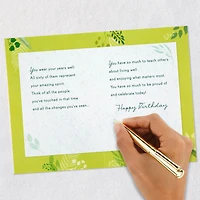 You wear your years well.
All sixty of them represent
your amazing spirit.
Think of all the people
you've touched in that time
and all the changes you've seen...
You have so much to teach others
about living well
and enjoying what matters most.
You have so much to be proud of
and celebrate today!
Happy Birthday